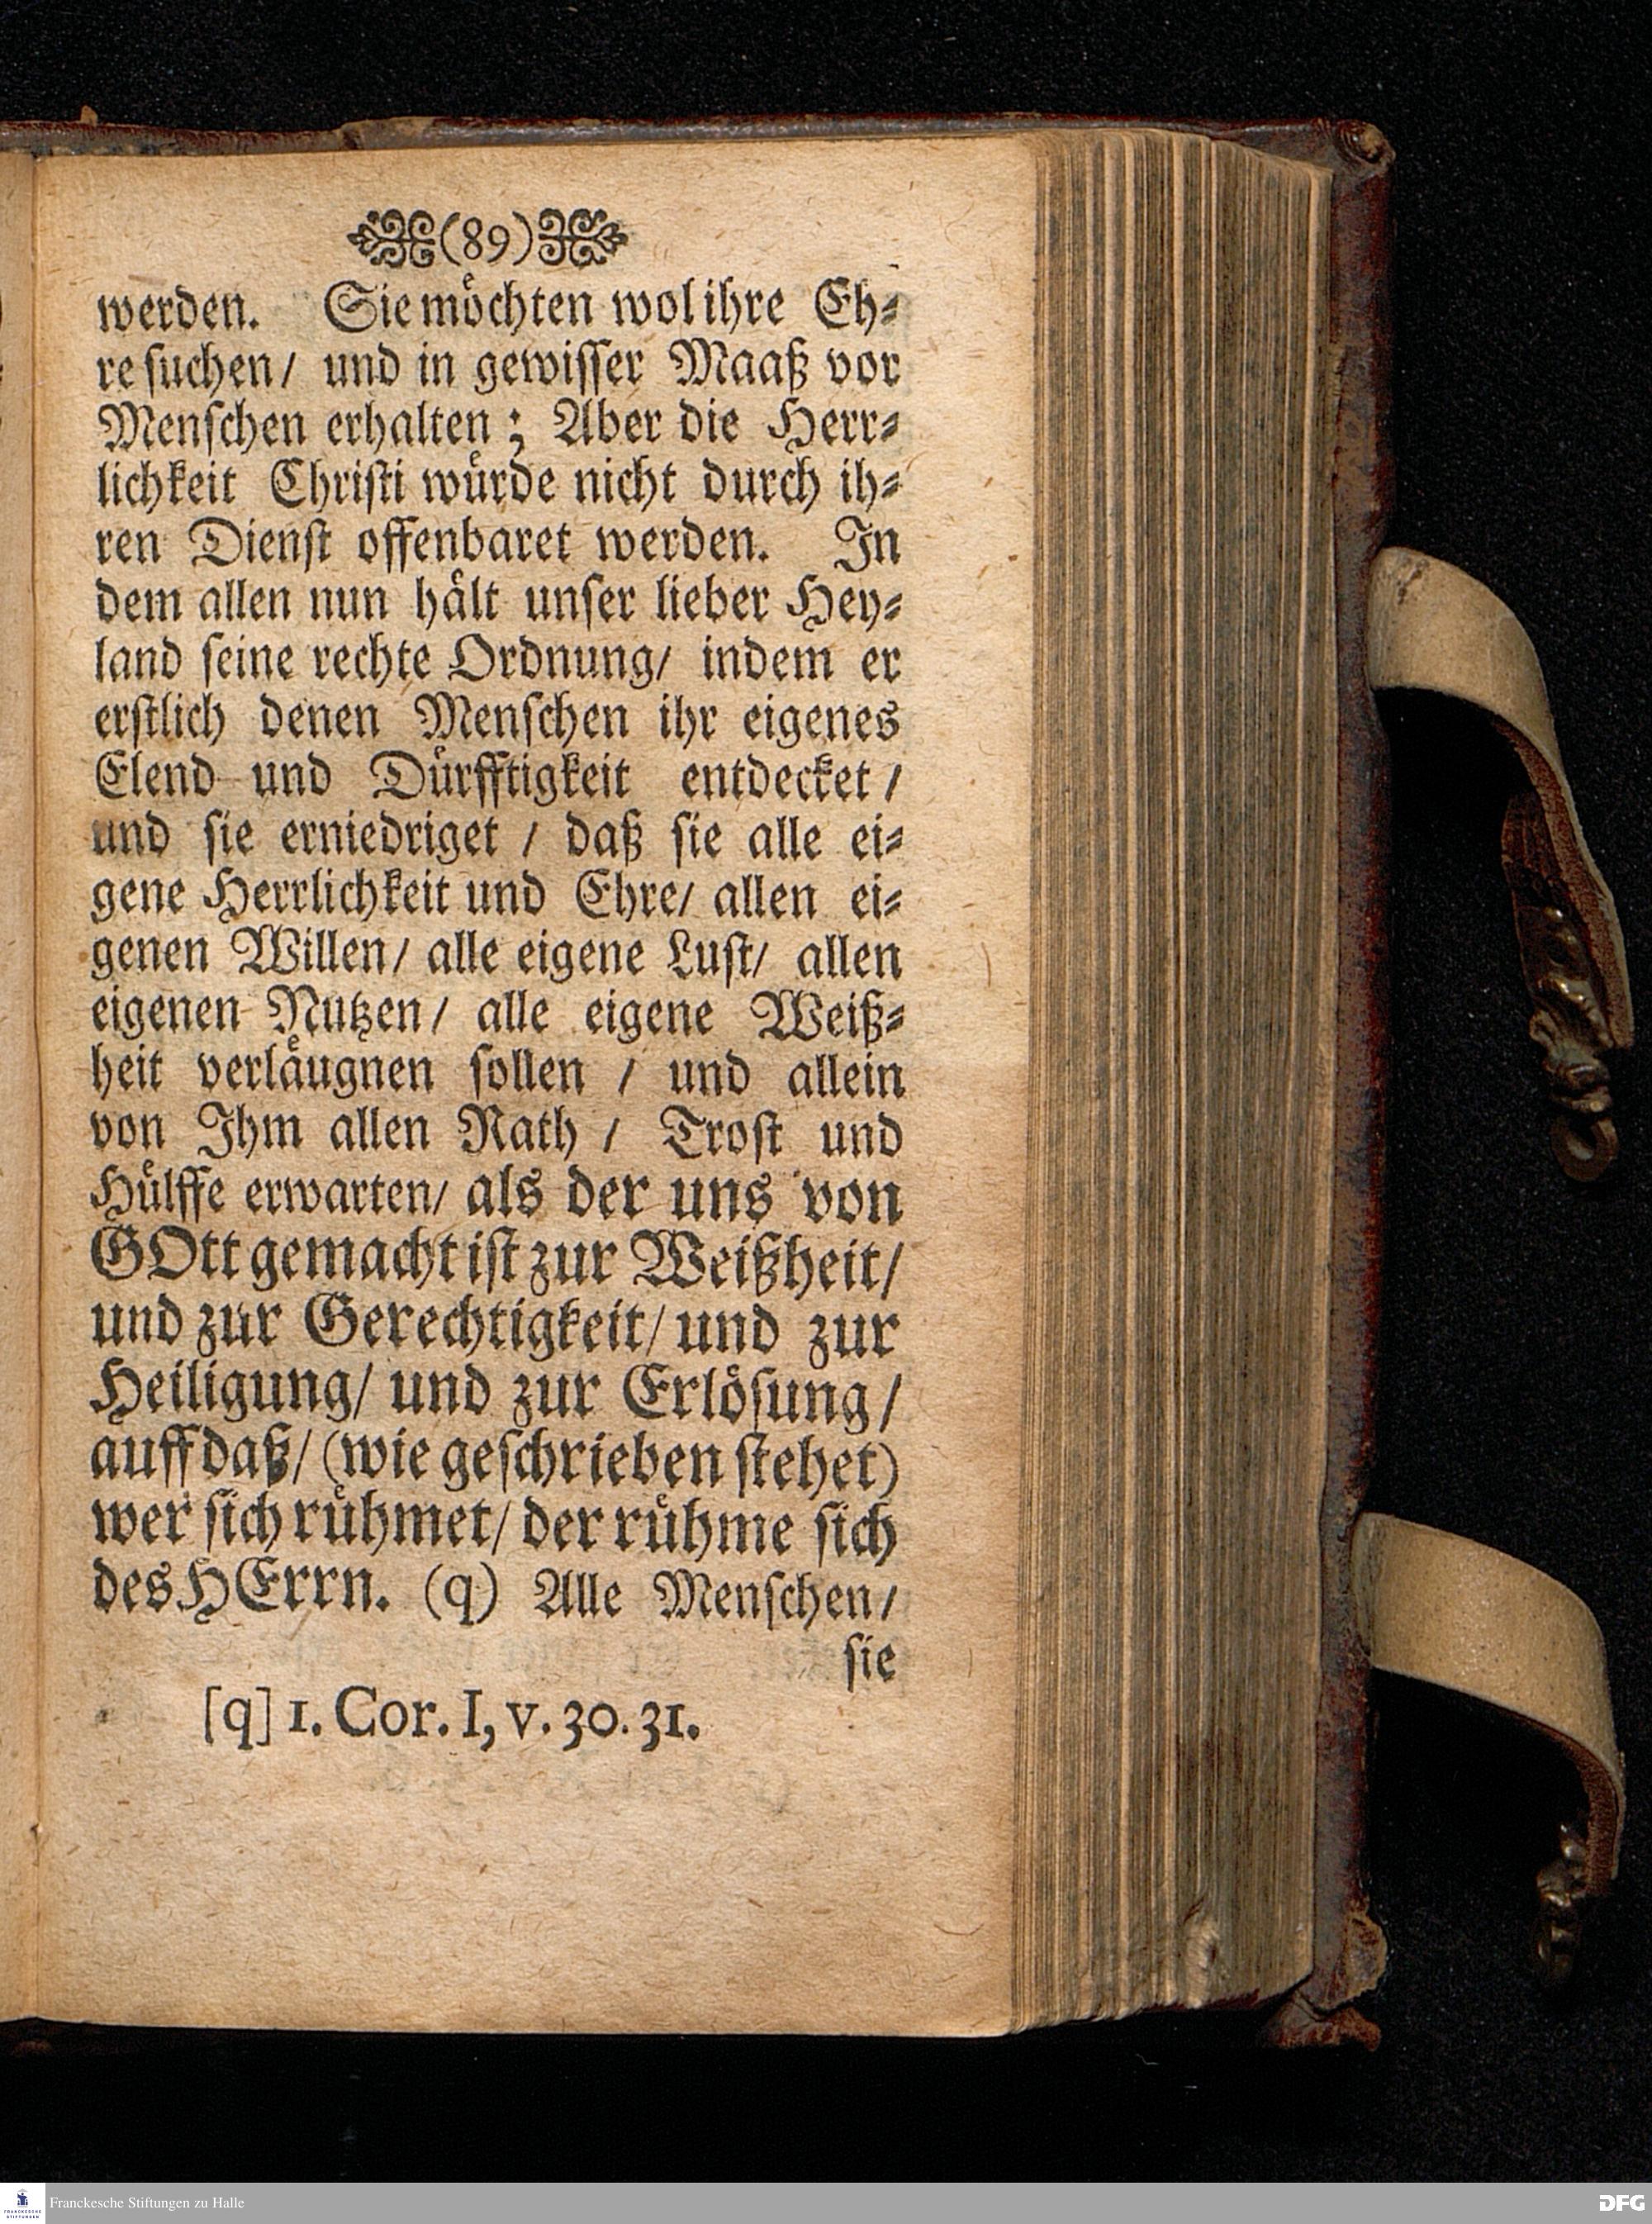 (89)
werden. Sie möchten wol ihre Eh-
re suchen/ und in gewisser Maaß vor
Menschen erhalten; Aber die Herr-
lichkeit Christi würde nicht durch ih-
ren Dienst offenbaret werden. In
dem allen nun hält unser lieber Hey-
land seine rechte Ordnung/ indem er
erstlich denen Menschen ihr eigenes
Elend und Dürfftigkeit entdecket/
und sie erniedriget / daß sie alle ei-
gene Herrlichkeit und Ehre/ allen ei-
genen Willen/ alle eigene Lust/ allen
eigenen Nutzen/ alle eigene Weiß-
heit verläugnen sollen / und allein
von Ihm allen Rath / Trost und
Hülffe erwarten/ als der uns von
GOtt gemacht ist zur Weißheit/
und zur Gerechtigkeit/ und zur
Heiligung/ und zur Erlösung/
auff daß/ (wie geschrieben stehet)
wer sich rühmet/ der rühme sich
des HErrn. (q) Alle Menschen/
sie
[q] 1. Cor. I, v. 30. 31.
FRANCKESCHE STIFTUNGEN
Franckesche Stiftungen zu Halle
DFG